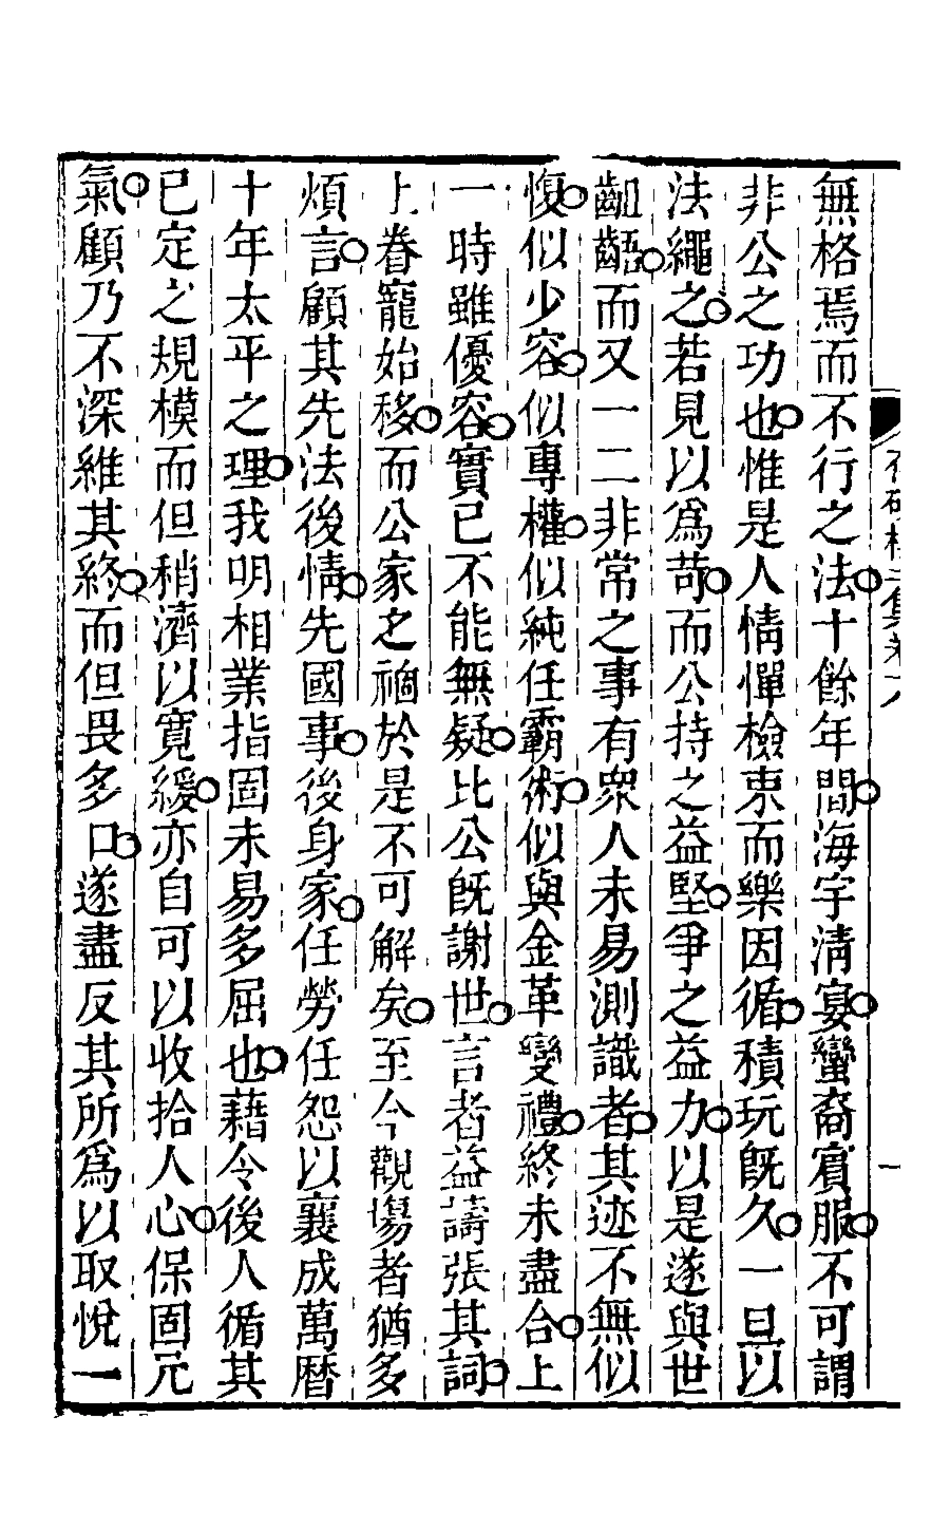 無格焉而不行之法十餘年間海宇清宴蠻裔賓服不可謂
非公之功也惟是人情憚檢束而樂因循積玩旣久一旦以
法繩之若見以爲苛而公持之益堅爭之益力以是遂與世
齟齬而又一二非常之事有衆人未易測識者其迹不無似
愎似少容似專權似純任霸術似與金革變禮終未盡合上
一時雖優容實已不能無疑比公旣謝世言者益譸張其詞
上眷寵始移而公家之禍於是不可解矣至今觀塲者猶多
煩言顧其先法後情先國事後身家任勞任怨以襄成萬曆
十年太平之理我明相業指固未易多屈也藉令後人循其
已定之規模而但稍濟以寛緩亦自可以收拾人心保固元
氣顧乃不深維其終而但畏多口遂盡反其所爲以取悅一